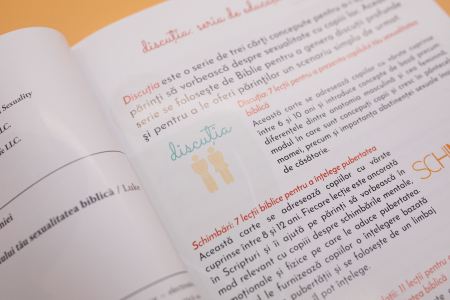 Sexuality
LLC.
LLC.
sexualitatea biblică / Luke
discuția: seria de
Discuția este o serie de trei cărți concepute pentru a
părinți să vorbească despre sexualitate cu copiii lor. Această
serie se folosește de Biblie pentru a genera discuții profunde
și pentru a le oferi părinților un scenariu simplu de urmat.
discuția
Discuția: 7 lecții pentru a prezenta copilului tău sexualitatea
biblică
Această carte se adresează copiilor cu vârste cuprinse
între 6 și 10 ani și introduce concepte de bază precum
diferențele dintre anatomia masculină și cea feminină,
modul în care sunt concepuți copiii și cresc în pântecele
mamei, precum și importanța abstinenței sexuale înainte
de căsătorie.
Schimbări: 7 lecții biblice pentru a înțelege pubertatea
Această carte se adresează copiilor cu vârste
cuprinse între 8 și 12 ani. Fiecare lecție este ancorată
în Scripturi și îi ajută pe părinți să vorbească în
mod relevant cu copiii despre schimbările mentale,
emoționale și fizice pe care le aduce pubertatea.
le furnizează copiilor o înțelegere bazată
pubertății și se folosește de un limbaj
pot înțelege.
11 lecții pentru